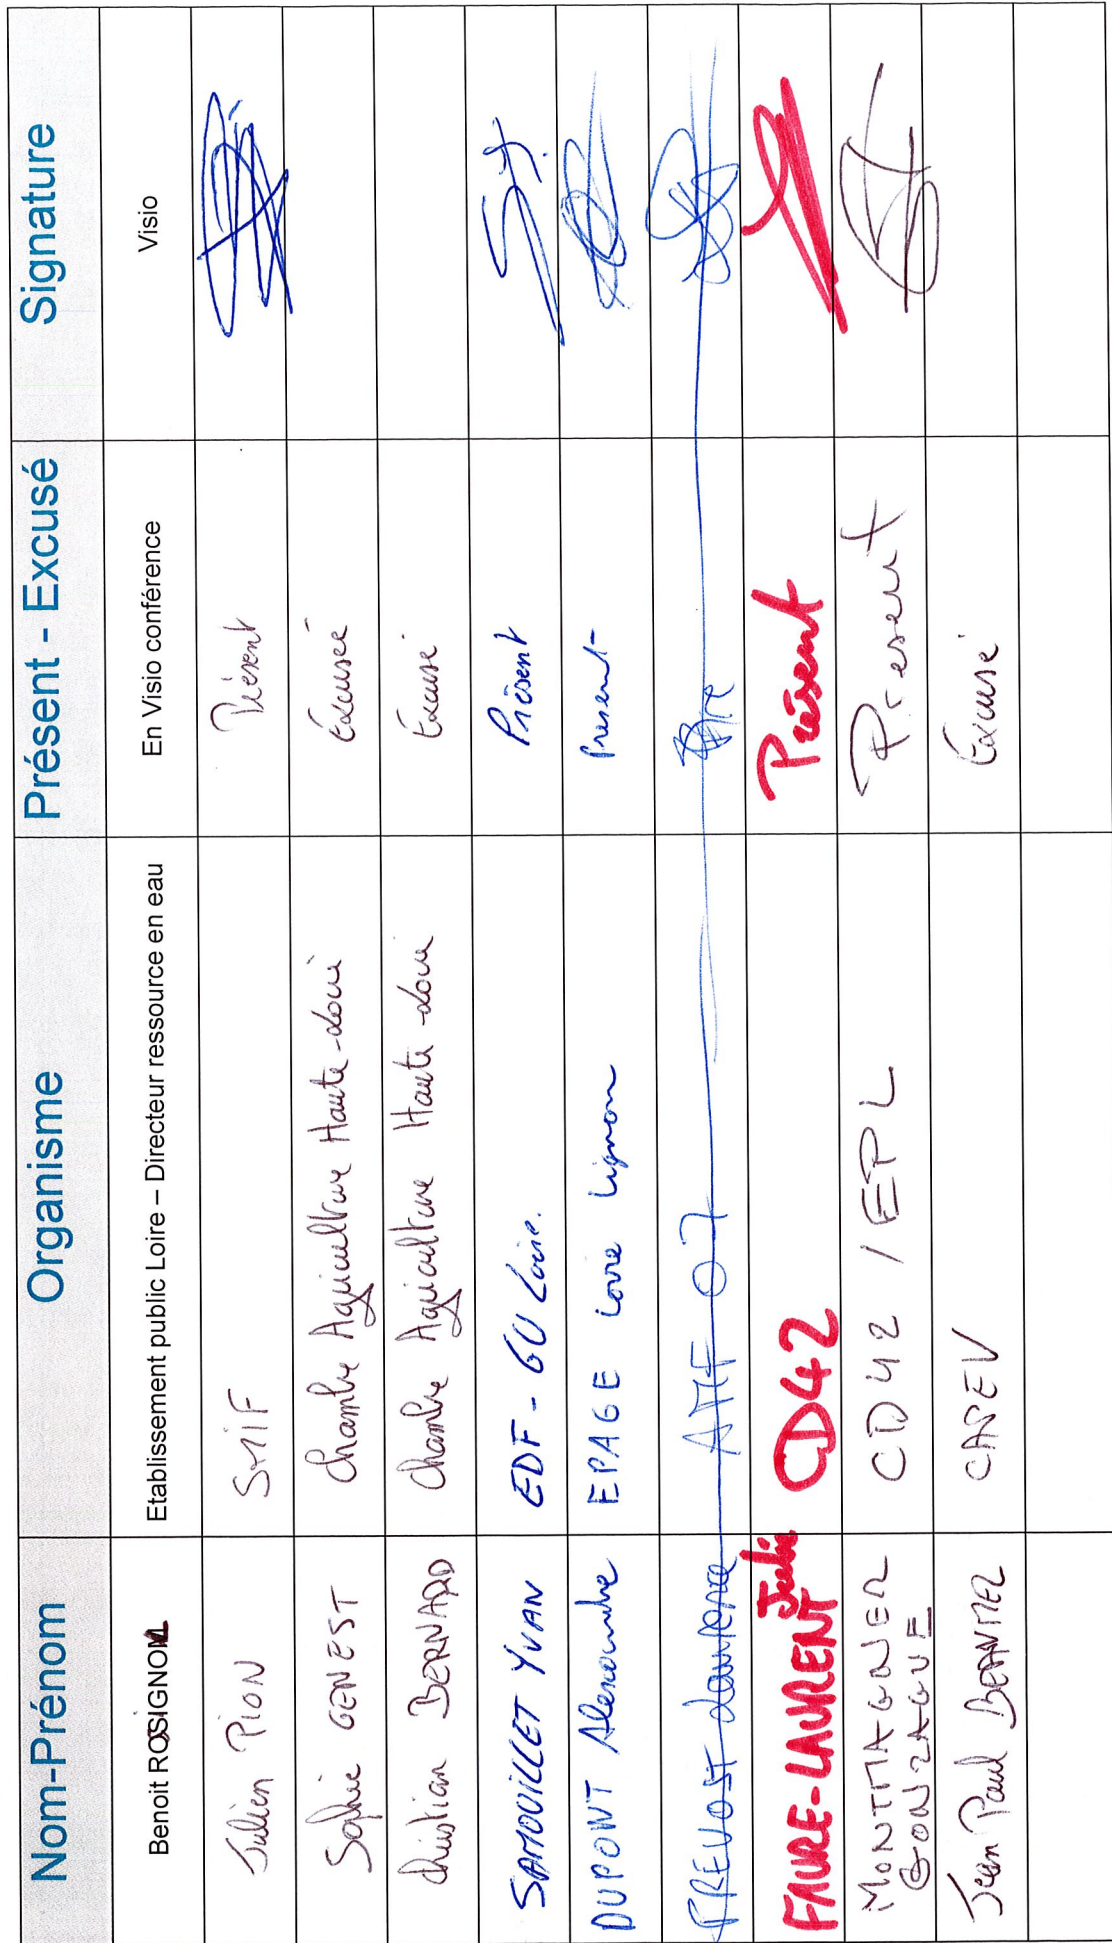 Nom-Prénom Organisme Présent - Excusé Signature
Benoit ROSSIGNOL Etablissement public Loire – Directeur ressource en eau En Visio conférence Visio
Julien PION SMIF Présent
Sophie GENEST Chambre Agriculture Haute-Loire Excusée
Christian BERNARD Chambre Agriculture Haute-Loire Excusé
SAMOUILLET YVAN EDF - GU Loire. Présent
DUPONT Alexandre EPAGE Loire Lignon Present
PREVOST Laurence AMF 07
FAURE-LAURENT Julie CD42 Présent
MONTTAGNER CD42 / EPL Present
GONZAGUE
Jean Paul CAPEV Excusé